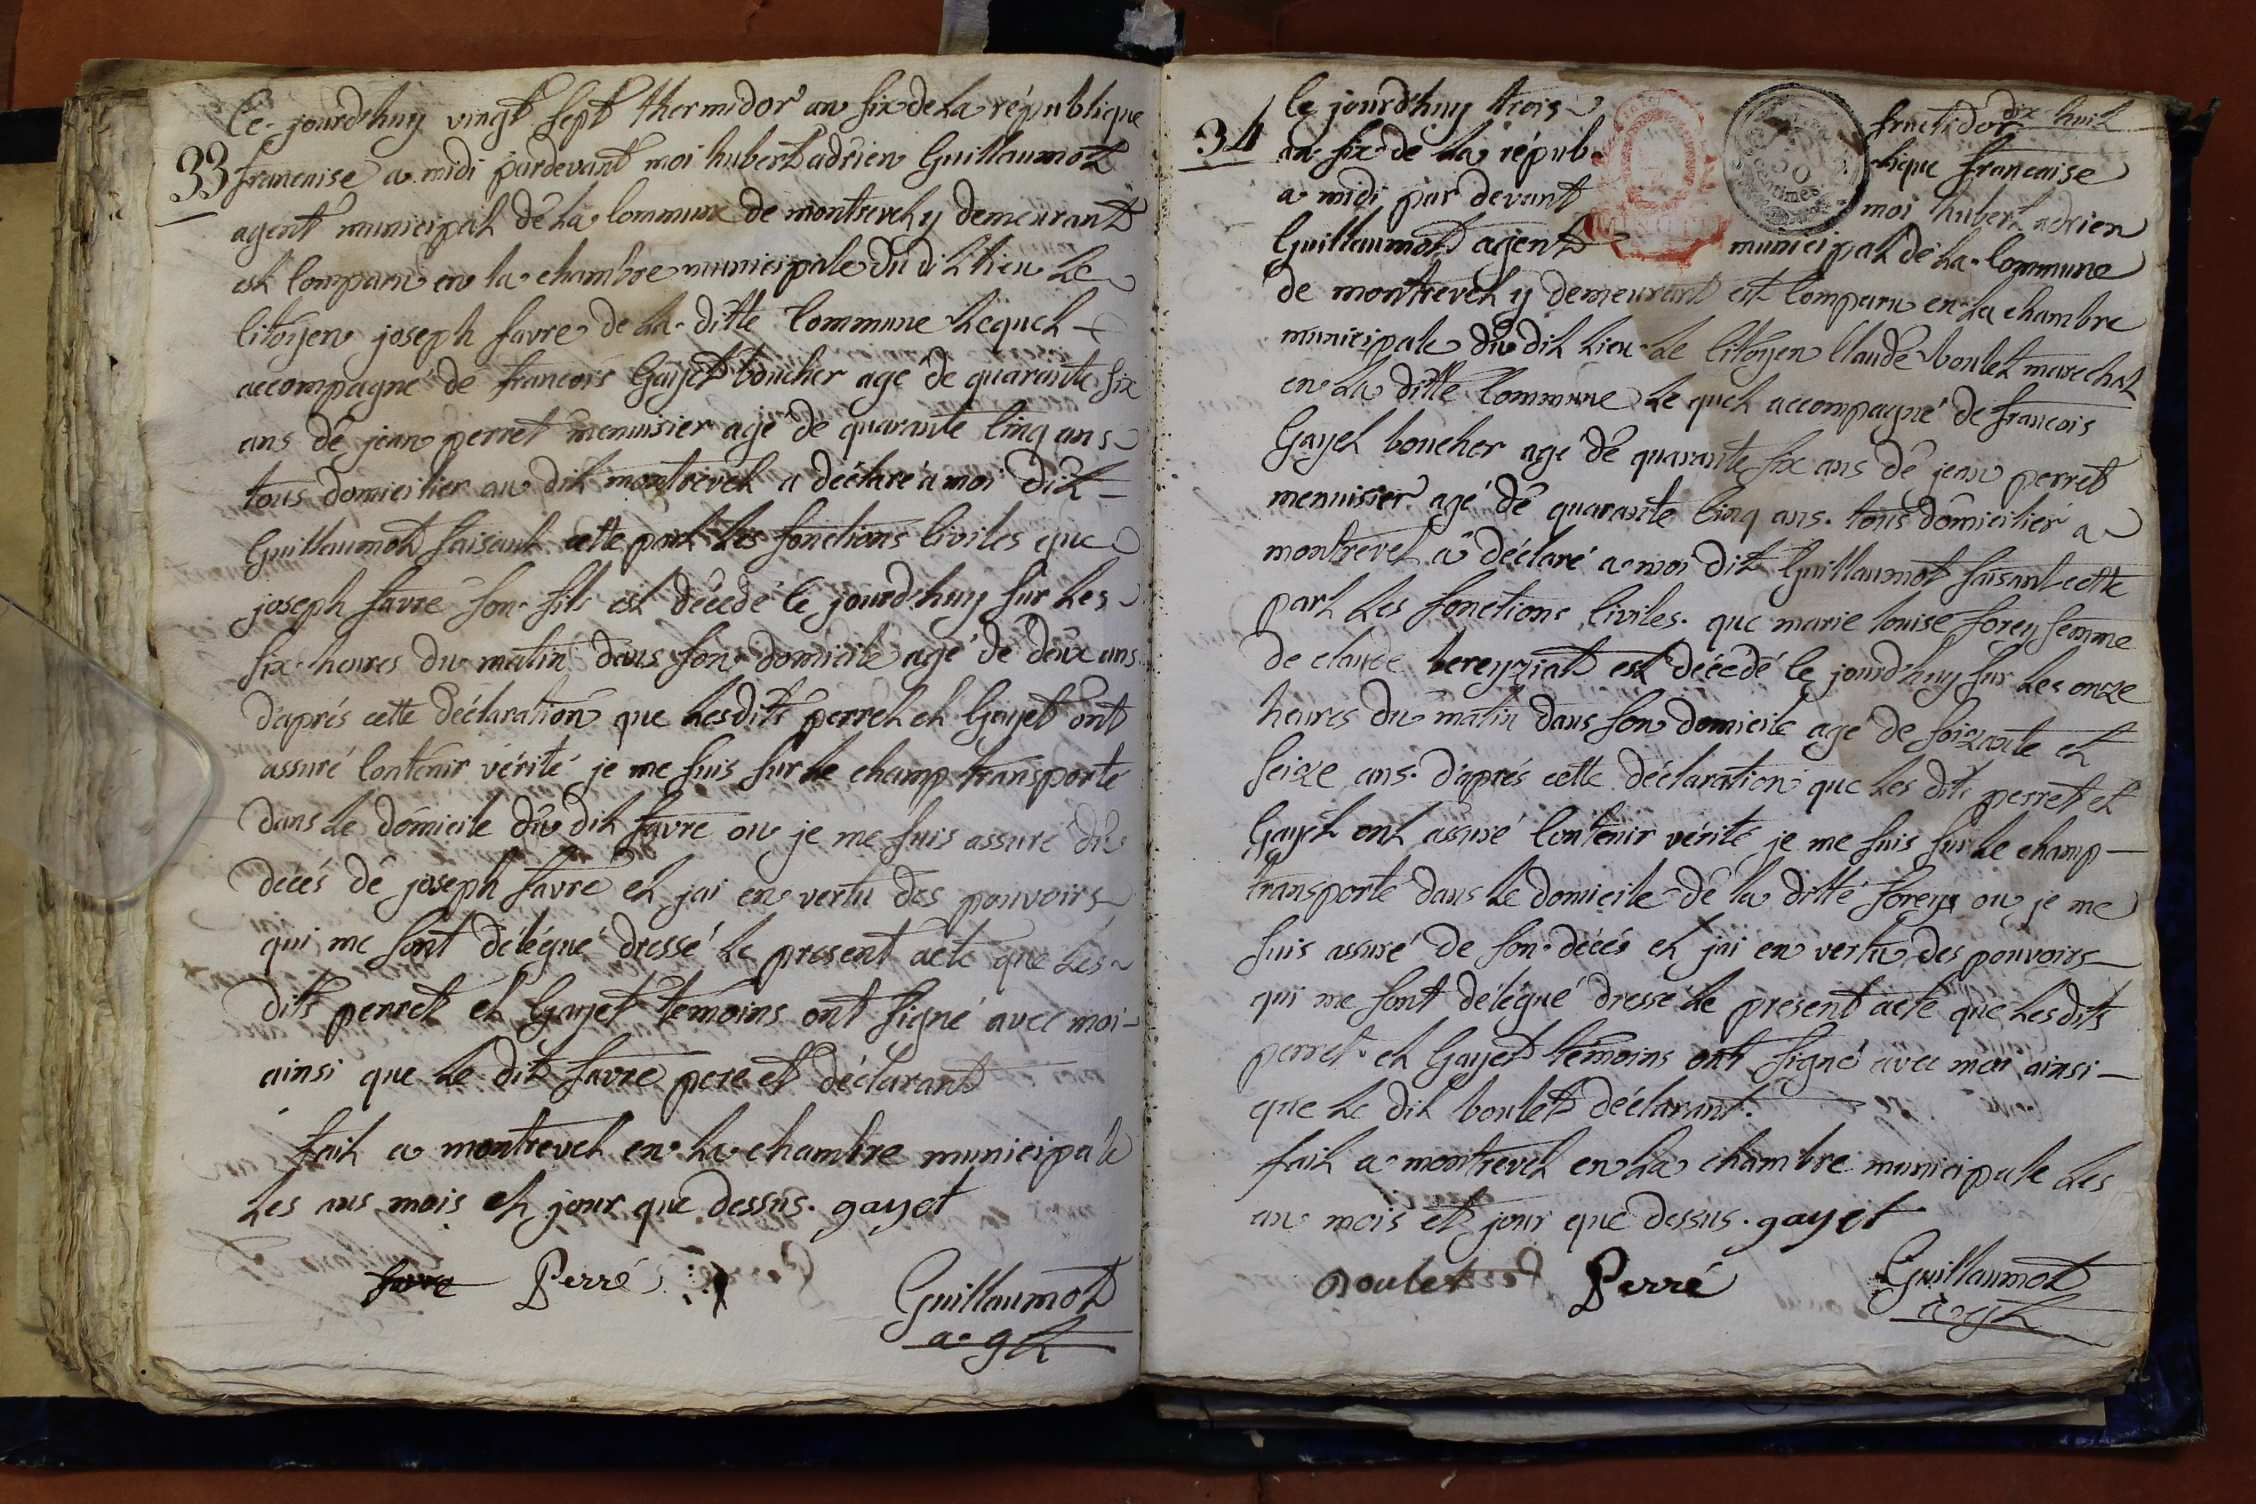 33
Ce jourd'huy vingt sept thermidor an six de la république
francaise a midi pardevant moi hubert adrien Guillaumot
agent municipal de la Commune de montrevel y demeurant
est Comparu en la chambre municipale du dit lieu le
Citoyen joseph favre de la ditte Commune lequel
accompagné de francois Gayet boucher agé de quarante six
ans de jean perret menuisier agé de quarante Cinq ans
tous domicilier au dit montrevel a déclaré a moi dit
Guillaumot faisant cette part les fonctions Civiles que
joseph favre son fils est décedé le jourd'huy sur les
six heures du matin dans son domicile agé de deux ans
d'aprés cette déclaration que lesdits perret et Gayet ont
assuré Contenir vérité je me suis sur le champ transporté
dans le domicile du dit favre ou je me suis assuré du
decés de joseph favre et jai en vertu des pouvoirs
qui me sont délégué dressé le present acte que les
dits perret et Gayet témoins ont signé avec moi
ainsi que le dit favre pere et déclarant
fait a montrevel en la chambre municipale
les ans mois et jour que dessus. gayet
favre Perré
Guillaumot
agt
34
le jourd'huy trois fructidor dix huit
an six de la répub-lique francaise
a midi par devant moi hubert adrien
Guillaumot agent municipal de la Commune
de montrevel y demeurant est Comparu en la chambre
municipale du dit lieu le Citoyen Claude boulet marechal
en la ditte Commune le quel accompagné de francois
Gayet boucher agé de quarante six ans de jean perret
menuisier agé de quarante Cinq ans. tous domicilier a
montrevel a déclaré a moi dit Guillaumot faisant cette
part les fonctions Civiles. que marie louise forey femme
de claude bereyziat est décedé le jourd'huy sur les onze
heures du matin dans son domicile agé de soizante et
seize ans. d'aprés cette déclaration que les dits perret et
Gayet ont assuré Contenir vérité je me suis sur le champ
transporté dans le domicile de la ditte forey ou je me
suis assuré de son decés et jai en vertu des pouvoirs
qui me sont délégué dressé le present acte que lesdits
perret et Gayet témoins ont signé avec moi ainsi
que le dit boulet déclarant.
fait a montrevel en la chambre municipale les
an mois et jour que dessus. gayet
boulet Perré
Guillaumot
agt